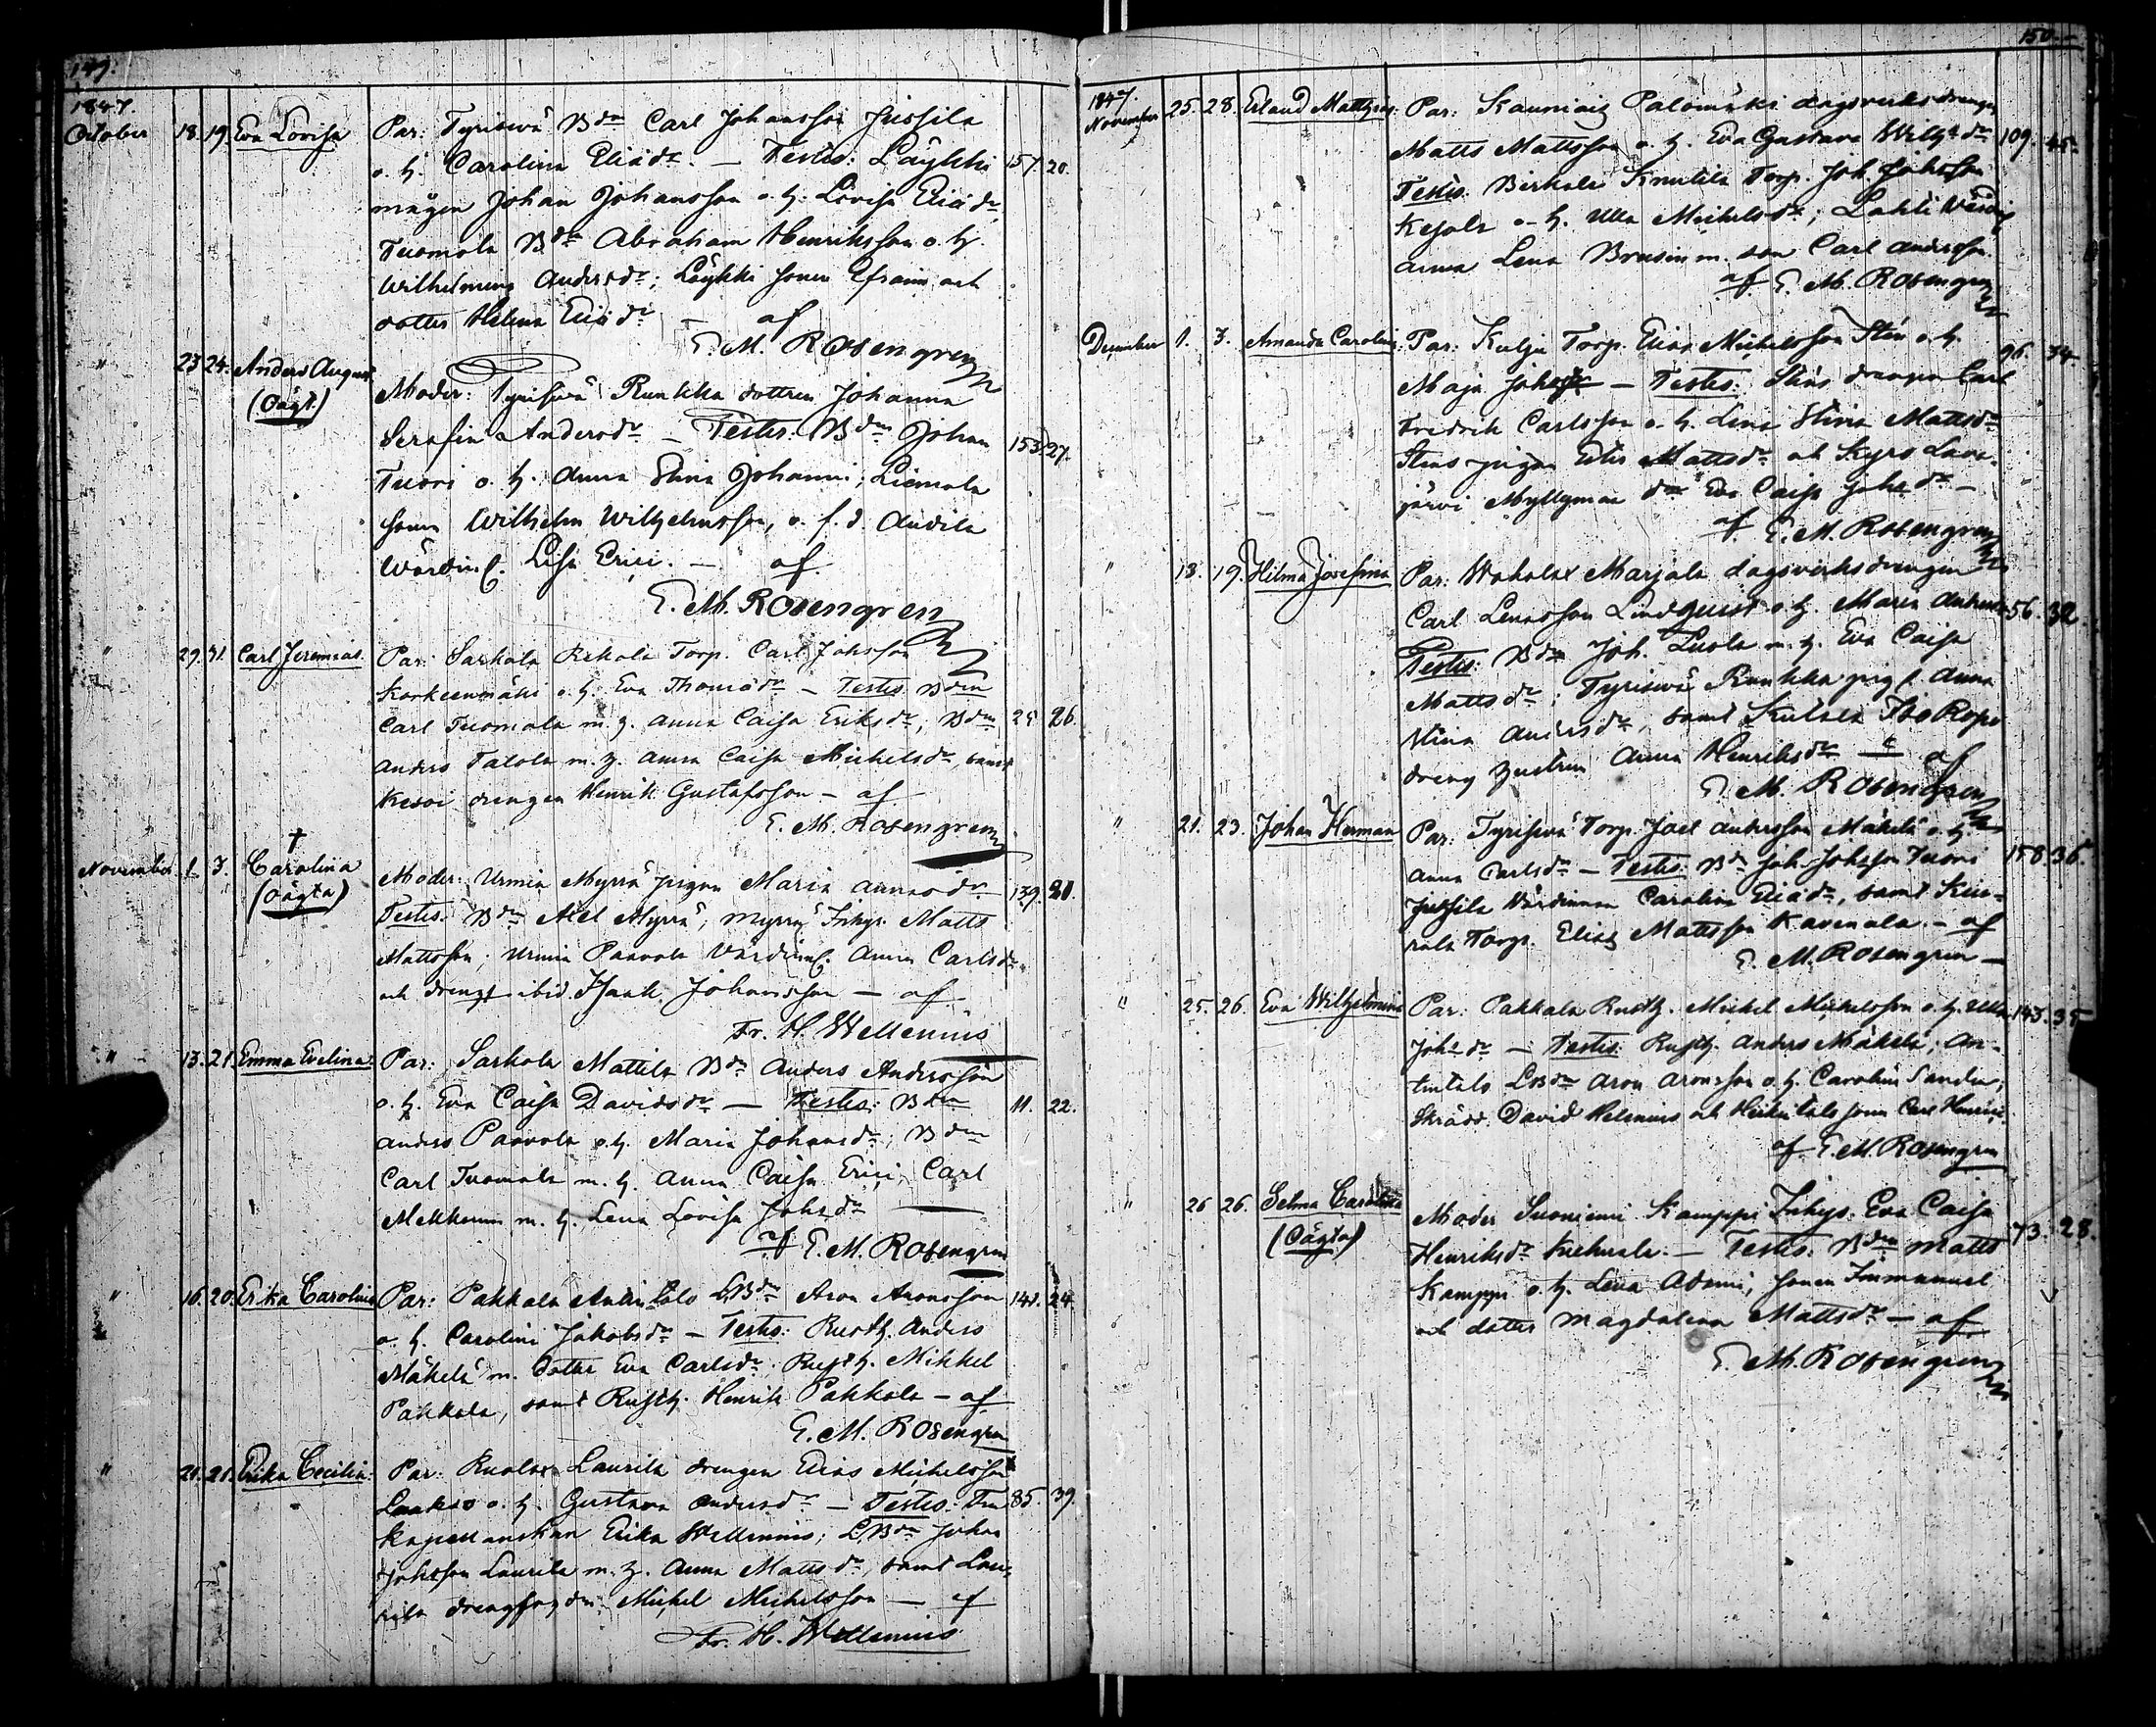 149.
1847
October 18. 19. Eva Lovisa Par: Tyriswä Bdn Carl Johansson Jussila
o. h. Carolina Eliædr. — Testes: Läykki 157. 20.
mågen Johan Johansson o. h. Lovisa Eliædr,
Tuomola Bdn Abraham Henriksson o. h.
Wilhelmina Andersdr; Läykki sonen Efraim och
dotter Helena Eliædr — af
E. M. Rosengren
" 23 24. Anders August
(Oägt.)
Moder: Tyriswä Runkka dottren Johanna
Serafin Andersdr — Testes: Bdn Johan 153. 27.
Tuori o. h. Anna Stina Johanni; Liemola
sonen Wilhelm Wilhelmsson, o. f. d. Andila
Wärdin. Lisa Erici. — af
E. M. Rosengren
" 29. 31. Carl Jeremias. Par: Sarkola Rekola Torp. Carl Johsson
Korkeenmäki o. h. Eva Thomædr — Testes Bdn
Carl Tuomola m. h. Anna Caisa Eriksdr; Bdn 25 26.
Anders Tatola m. h. Anna Caisa Michelsdr, samt
Kesoi drengen Henrik Gustafsson — af
E. M. Rosengren
†
November 1. 3. Carolina
(oägta)
Moder: Urmia Myrrä pigan Maria Annasdr 139. 21.
Testes. Bdn Axel Myrrä; Myrrä Inhys. Matts
Mattsson; Urmia Paavola Värdin. Anna Carlsdr
och dreng ibid. Isaak Johansson — af
Fr. H. Wellenius
" 13. 21. Emma Evelina. Par: Sarkola Mattila Bdn Anders Andersson
o. h. Eva Caisa Davidsdr — Testes: Bdn 11. 22.
Anders Paavola o. h. Maria Johansdr; Bdn
Carl Tuomola m. h. Anna Caisa Erici; Carl
Mekkonen m. h. Lena Lovisa Johsdr
af E. M. Rosengren
" 16. 20. Erika Carolina Par: Pakkala Anttintalo LBdn Aron Aronsson 141. 24
o. h. Carolina Jakobsdr — Testes: Rusth. Anders
Mäkelä m. dotter Eva Carlsdr. Rusth. Mikkel
Pakkala, samt Rusth. Henrik Pakkala — af
E. M. Rosengren
" 21. 21. Erika Cecilia. Par: Kuolax Laurila drengen Elias Michelsson
Laakso o. h. Gustava Andersdr — Testes: Fru 85. 39.
Kapellanskan Erika Wellenius; LBdn Johan
Johsson Laurila m. h. Anna Mattsdr, samt Lau-
rila drengfogden Michel Michelsson — af
Fr. H. Wellenius
150.
1847.
November 25. 28. Erland Matthias. Par: Kauniais Palomäki dagsverksdrengen
Matts Mattsson o. h. Eva Gustava Wilhsdr 109. 45.
Testes. Birkala Knutila Torp. Joh. Johsson
Kesola o. h. Ulla Michelsdr; Lahti Värdin
Anna Lena Brusiin m. son Carl Andersson.
af E. M. Rosengren
December 1. 3. Amanda Carolina. Par: Kulju Torp. Elias Michelsson Stén o. h.
Maja Johsdr — Testes: Sténs drengen Carl 96. 34.
Fredrik Carlsson o. h. Lena Stina Mattsdr
Sténs pigan Eder Mattsdr och Kyro Lava-
järvi Myllymaa dr Eva Caisa Johsdr —
af E. M. Rosengren
" 13. 19. Hilma Josefina Par: Wahalax Marjala dagsverksdrengen
Carl Lenasson Lindquist o. h. Maria Andersdr 56. 32.
Testes: Bdn Joh. Luola m. h. Eva Caisa
Mattsdr; Tyriswä Runkka pig. Anna
Stina Andersdr, samt Kulsela Iso Ropo
dreng hustrun Anna Henriksdr — af
E. M. Rosengren
" 21. 23. Johan Herman Par: Tyriswä Torp. Joel Andersson Mäkelä o. h.
Anna Carlsdr — Testes: Bdn Joh. Johsson Tuori 158. 36.
Jussila Värdinnan Carolina Eliædr, samt Kui-
rala Torp. Elias Mattsson Kavenala. — af
E. M. Rosengren —
" 25. 26. Eva Wilhelmina Par: Pakkala Rusth. Michel Michelsson o. h. Ulla 143. 35
Johsdr — Testes: Rusth. Anders Mäkelä; An-
tintalo LBdn Aron Aronsson o. h. Carolina Sander;
Skrädd. David Helenius och Heikintalo sonen Carl Henrics.
af E. M. Rosengren
" 26 26. Selma Carolina
(Oägta)
Moder Suoniemi Kamppi Inhys. Eva Caisa
Henriksdr Kuehnala. — Testes: Bdn Matts 73. 28.
Kamppi o. h. Lena Adami; sonen Immanuel
och dotter Magdalena Mattsdr — af
E. M. Rosengren